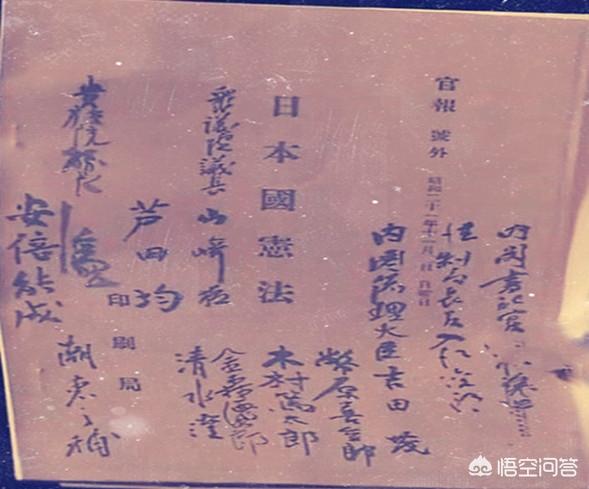 官報 號外 昭和二十一年十一月三日
内閣書記官
法制局長官 入江俊郎
内閣總理大臣吉田茂
幣原喜重郎
日本國憲法
木村篤太郎
衆議院議長 山崎猛
金森德次郎
清水澄
芦田均
印刷局
貴族院
安倍能成
潮惠之輔
悟空问答